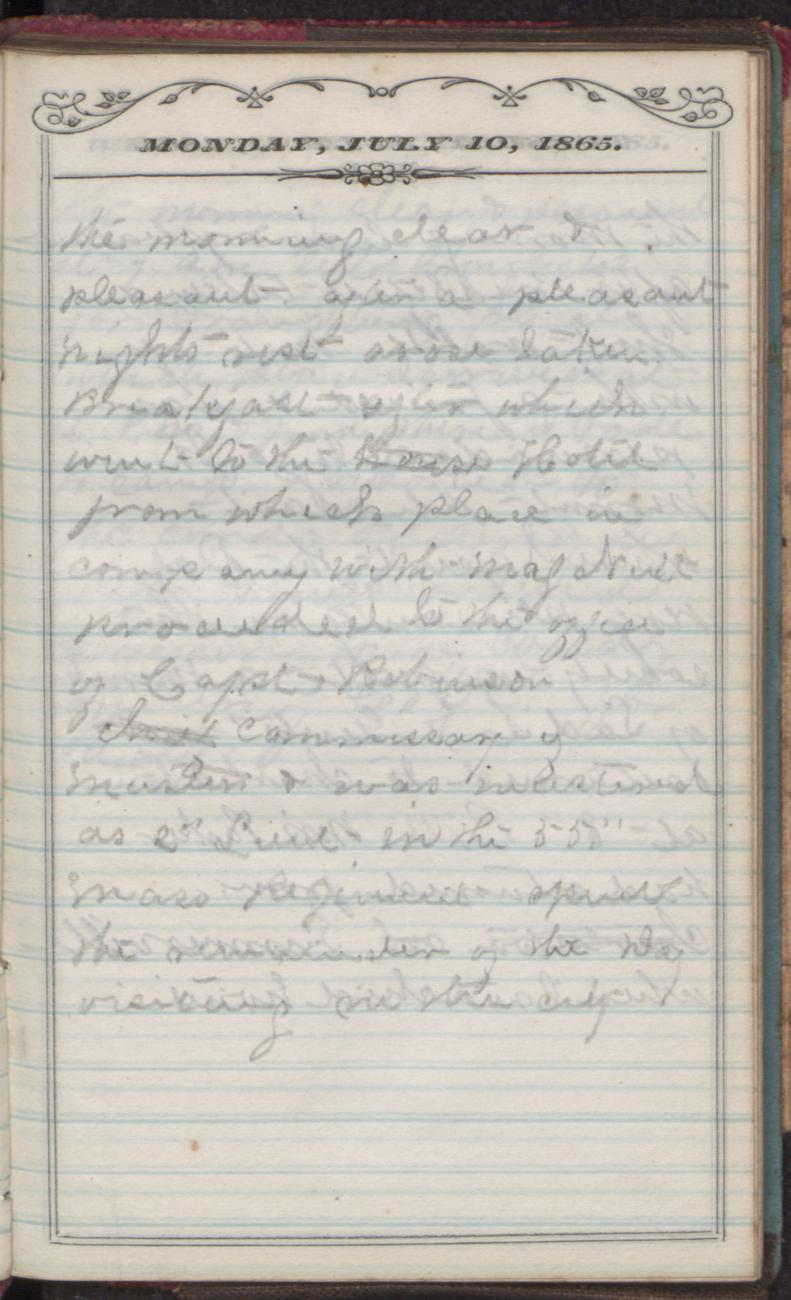 MONDAY, JULY 10, 1865.
the morning clear &
pleasant after a pleasant
nights rest arose taken
Breakfast after which
went to the House Hotel
from which place in
company with Maj Nutt
proceeded to the office
of Capt Robinson
Commissary of
Musters & was mustered
as 2" Lieut in the 55"
Mass Regiment spent
the remainder of the Day
visiting in the city